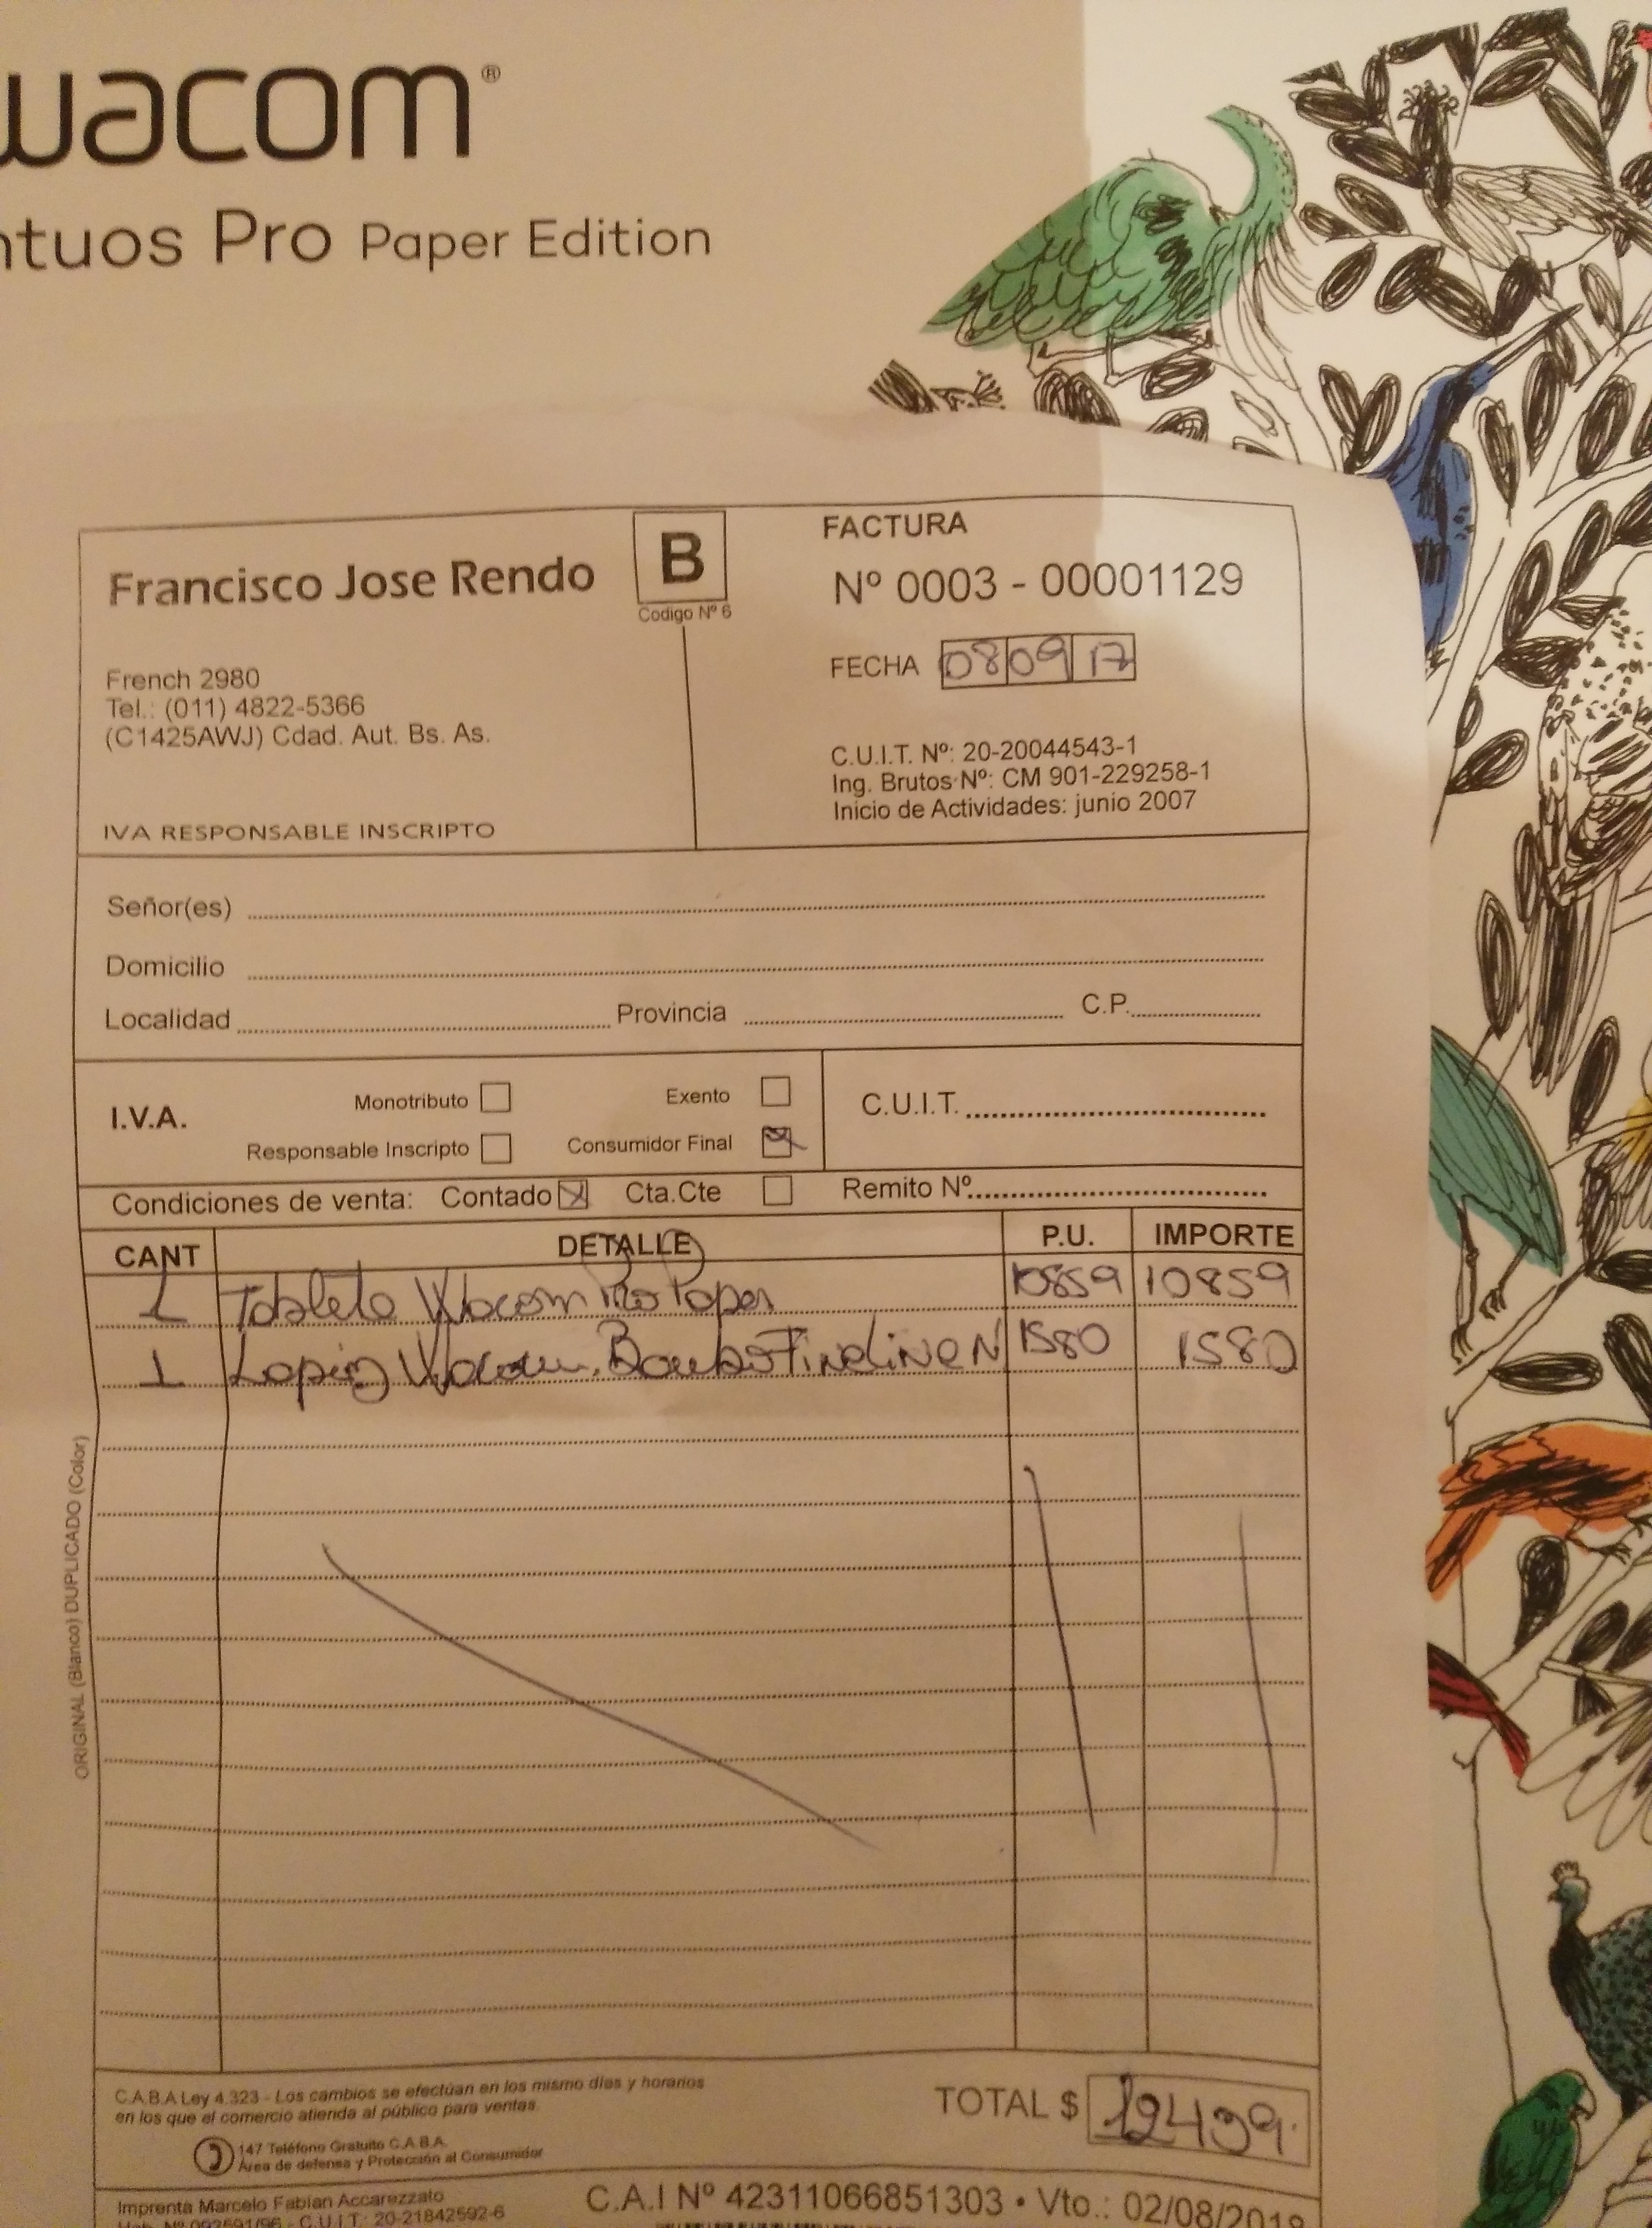 wacom®
ntuos Pro Paper Edition
Francisco Jose Rendo
B
Codigo Nº 6
FACTURA
Nº 0003 - 00001129
FECHA 08 09 17
French 2980
Tel.: (011) 4822-5366
(C1425AWJ) Cdad. Aut. Bs. As.
C.U.I.T. Nº: 20-20044543-1
Ing. Brutos Nº: CM 901-229258-1
Inicio de Actividades: junio 2007
IVA RESPONSABLE INSCRIPTO
Señor(es)
Domicilio
Localidad Provincia C.P.
I.V.A. Monotributo Exento C.U.I.T.
Responsable Inscripto Consumidor Final
Condiciones de venta: Contado Cta.Cte Remito Nº
CANT DETALLE P.U. IMPORTE
1 Tableta Wacom Pro Paper 10859 10859
1 Lapiz Wacom. Bambo Fineline N 1580 1580
ORIGINAL (Blanco) DUPLICADO (Color)
C.A.B.A Ley 4.323 - Los cambios se efectúan en los mismo días y horarios
en los que el comercio atienda al público para ventas.
147 Teléfono Gratuito C.A.B.A.
Area de defensa y Protección al Consumidor
TOTAL $ 12439.
Imprenta Marcelo Fabían Accarezzato
Hab. Nº 092591/96 - C.U.I.T.: 20-21842592-6
C.A.I Nº 42311066851303 • Vto.: 02/08/2018